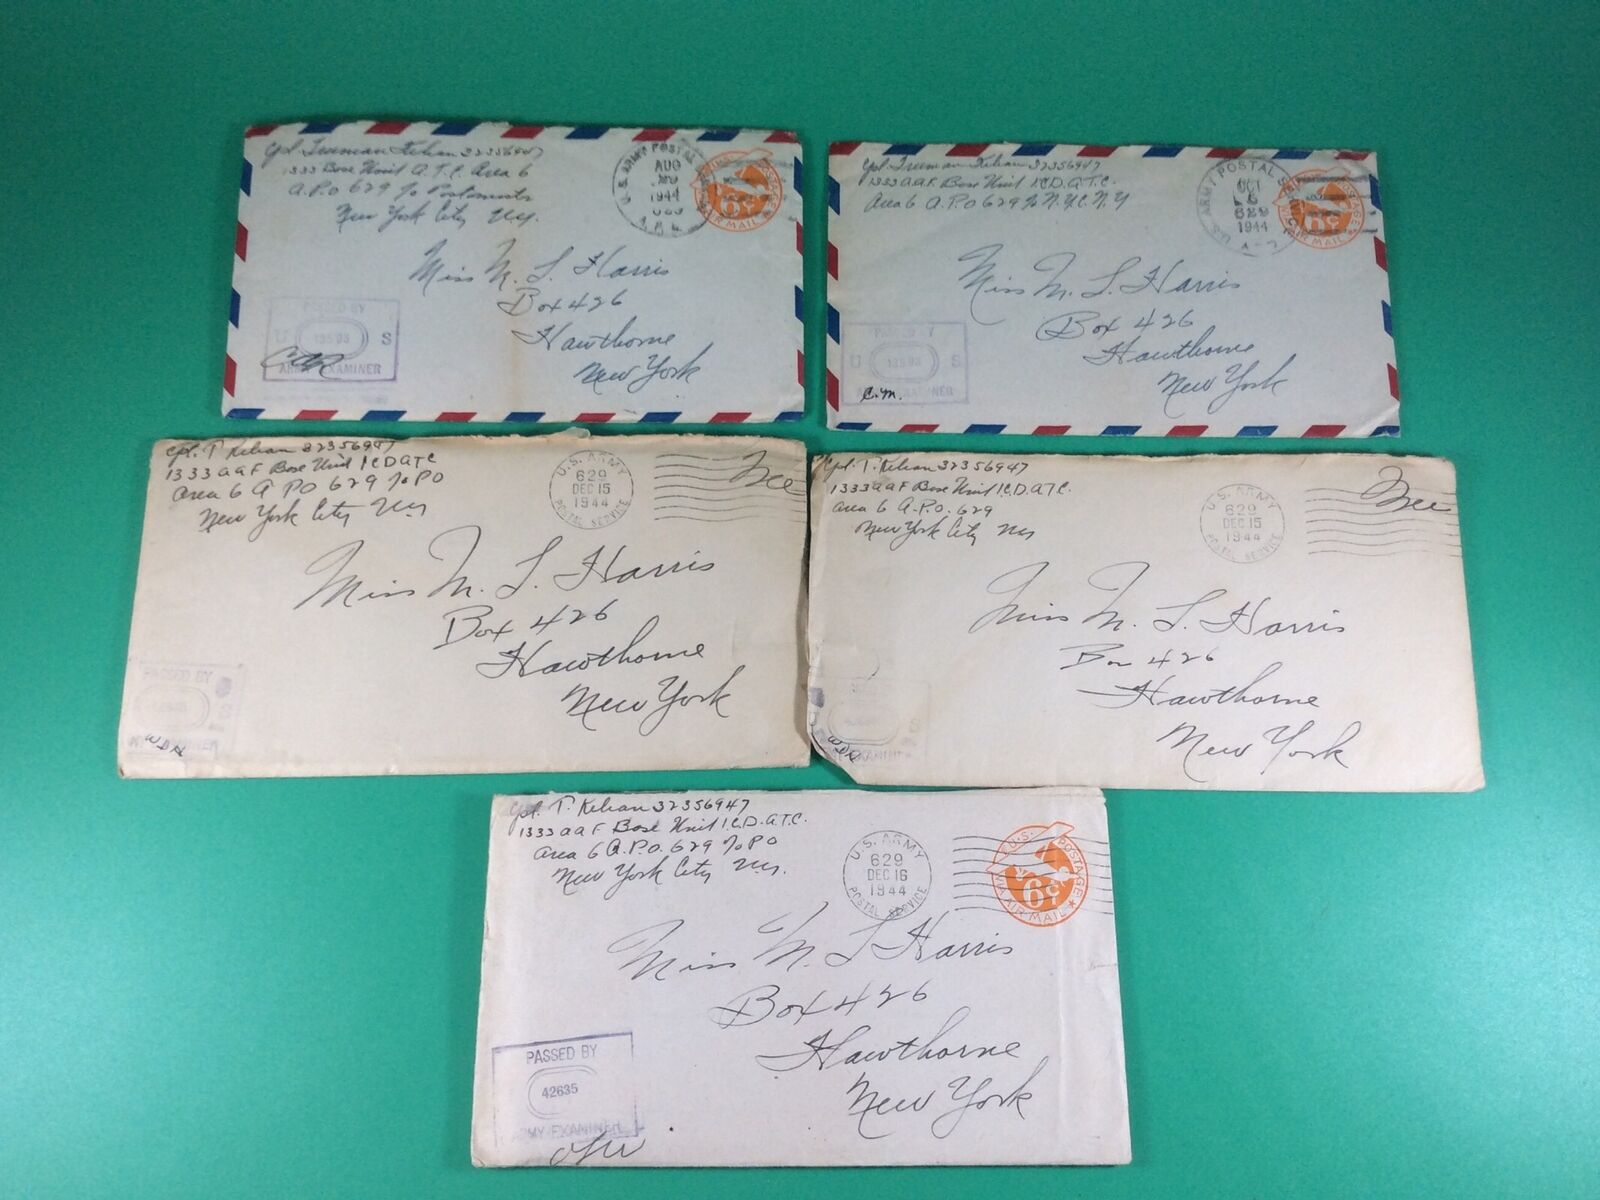 Cpl. Truman Kelian 32356947
1333 Base Unit A.T.C. Area 6
A.P.O 629 % Postmaster
New York City N.Y.
U.S. ARMY POSTAL
AUG
1944
629
A.P.O.
AIR MAIL
6¢
Miss M. L. Harris
Box 426
Hawthorne
New York
PASSED BY
U S
ARMY EXAMINER
Cpl. Truman Kelian 32356947
1333 AAF Base Unit I.C.D.A.T.C.
Area 6 A.P.O 629 % N.Y.C. N.Y
U.S. ARMY POSTAL
OCT
629
1944
6¢
AIR MAIL
Miss M. L. Harris
Box 426
Hawthorne
New York
PASSED BY
U S
ARMY EXAMINER
C.M.
Cpl. T. Kelian 32356947
1333 AAF Base Unit I.C.D.A.T.C
Area 6 A PO 629 % PO
New York City NY
U.S. ARMY
629
DEC 15
1944
POSTAL SERVICE
Free
Miss M. L. Harris
Box 426
Hawthorne
New York
PASSED BY
WDH
Cpl. T. Kelian 32356947
1333 AAF Base Unit I.C.D.A.T.C.
Area 6 A.P.O. 629
New York City NY
U.S. ARMY
629
DEC 15
1944
POSTAL SERVICE
Free
Miss M. L. Harris
Box 426
Hawthorne
New York
S
EXAMINER
Cpl. T. Kelian 32356947
1333 AAF Base Unit I.C.D.A.T.C.
Area 6 A.P.O. 629 % PO
New York City NY.
U.S. ARMY
629
DEC 16
1944
POSTAL SERVICE
U.S. POSTAGE
6¢
VIA AIR MAIL
Miss M. L Harris
Box 426
Hawthorne
New York
PASSED BY
42635
ARMY EXAMINER